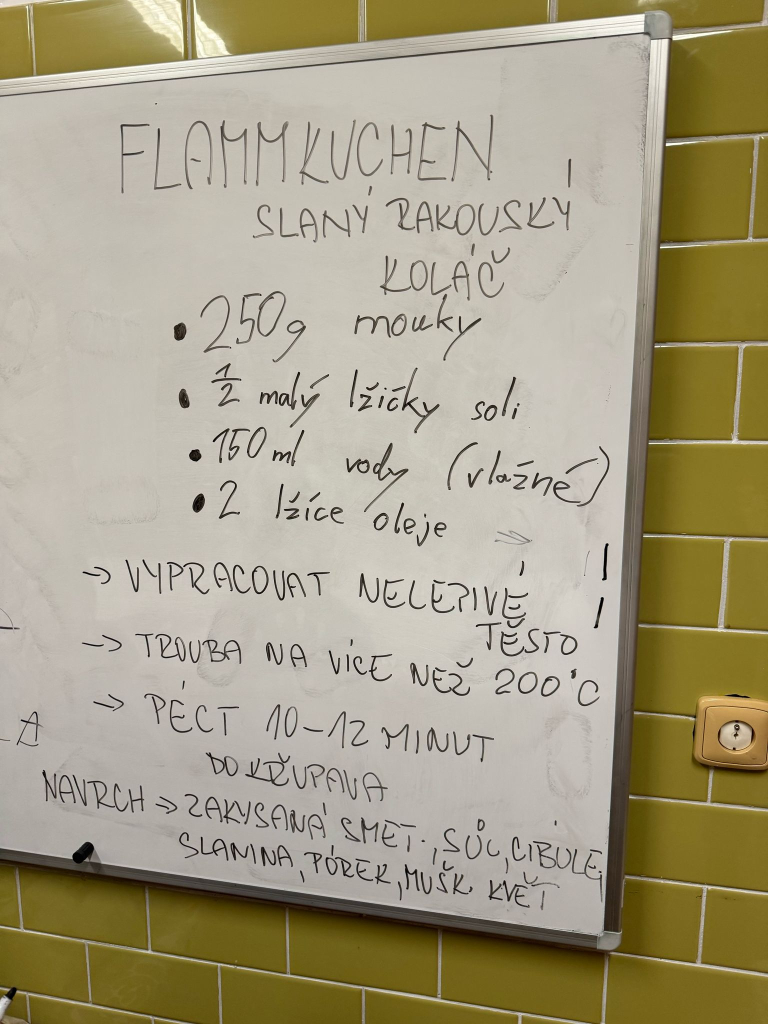 FLAMMKUCHEN
SLANÝ RAKOUSKÝ
KOLÁČ
• 250g mouky
• 1/2 malý lžičky soli
• 150 ml vody (vlažné)
• 2 lžíce oleje
→ VYPRACOVAT NELEPIVÉ
TĚSTO
→ TROUBA NA VÍCE NEŽ 200°C
→ PÉCT 10-12 MINUT
DO KŽUPAVA
NAVRCH → ZAKYSANÁ SMET., SŮL, CIBULE,
SLANINA, PÓREK, MUŠK. KVĚT